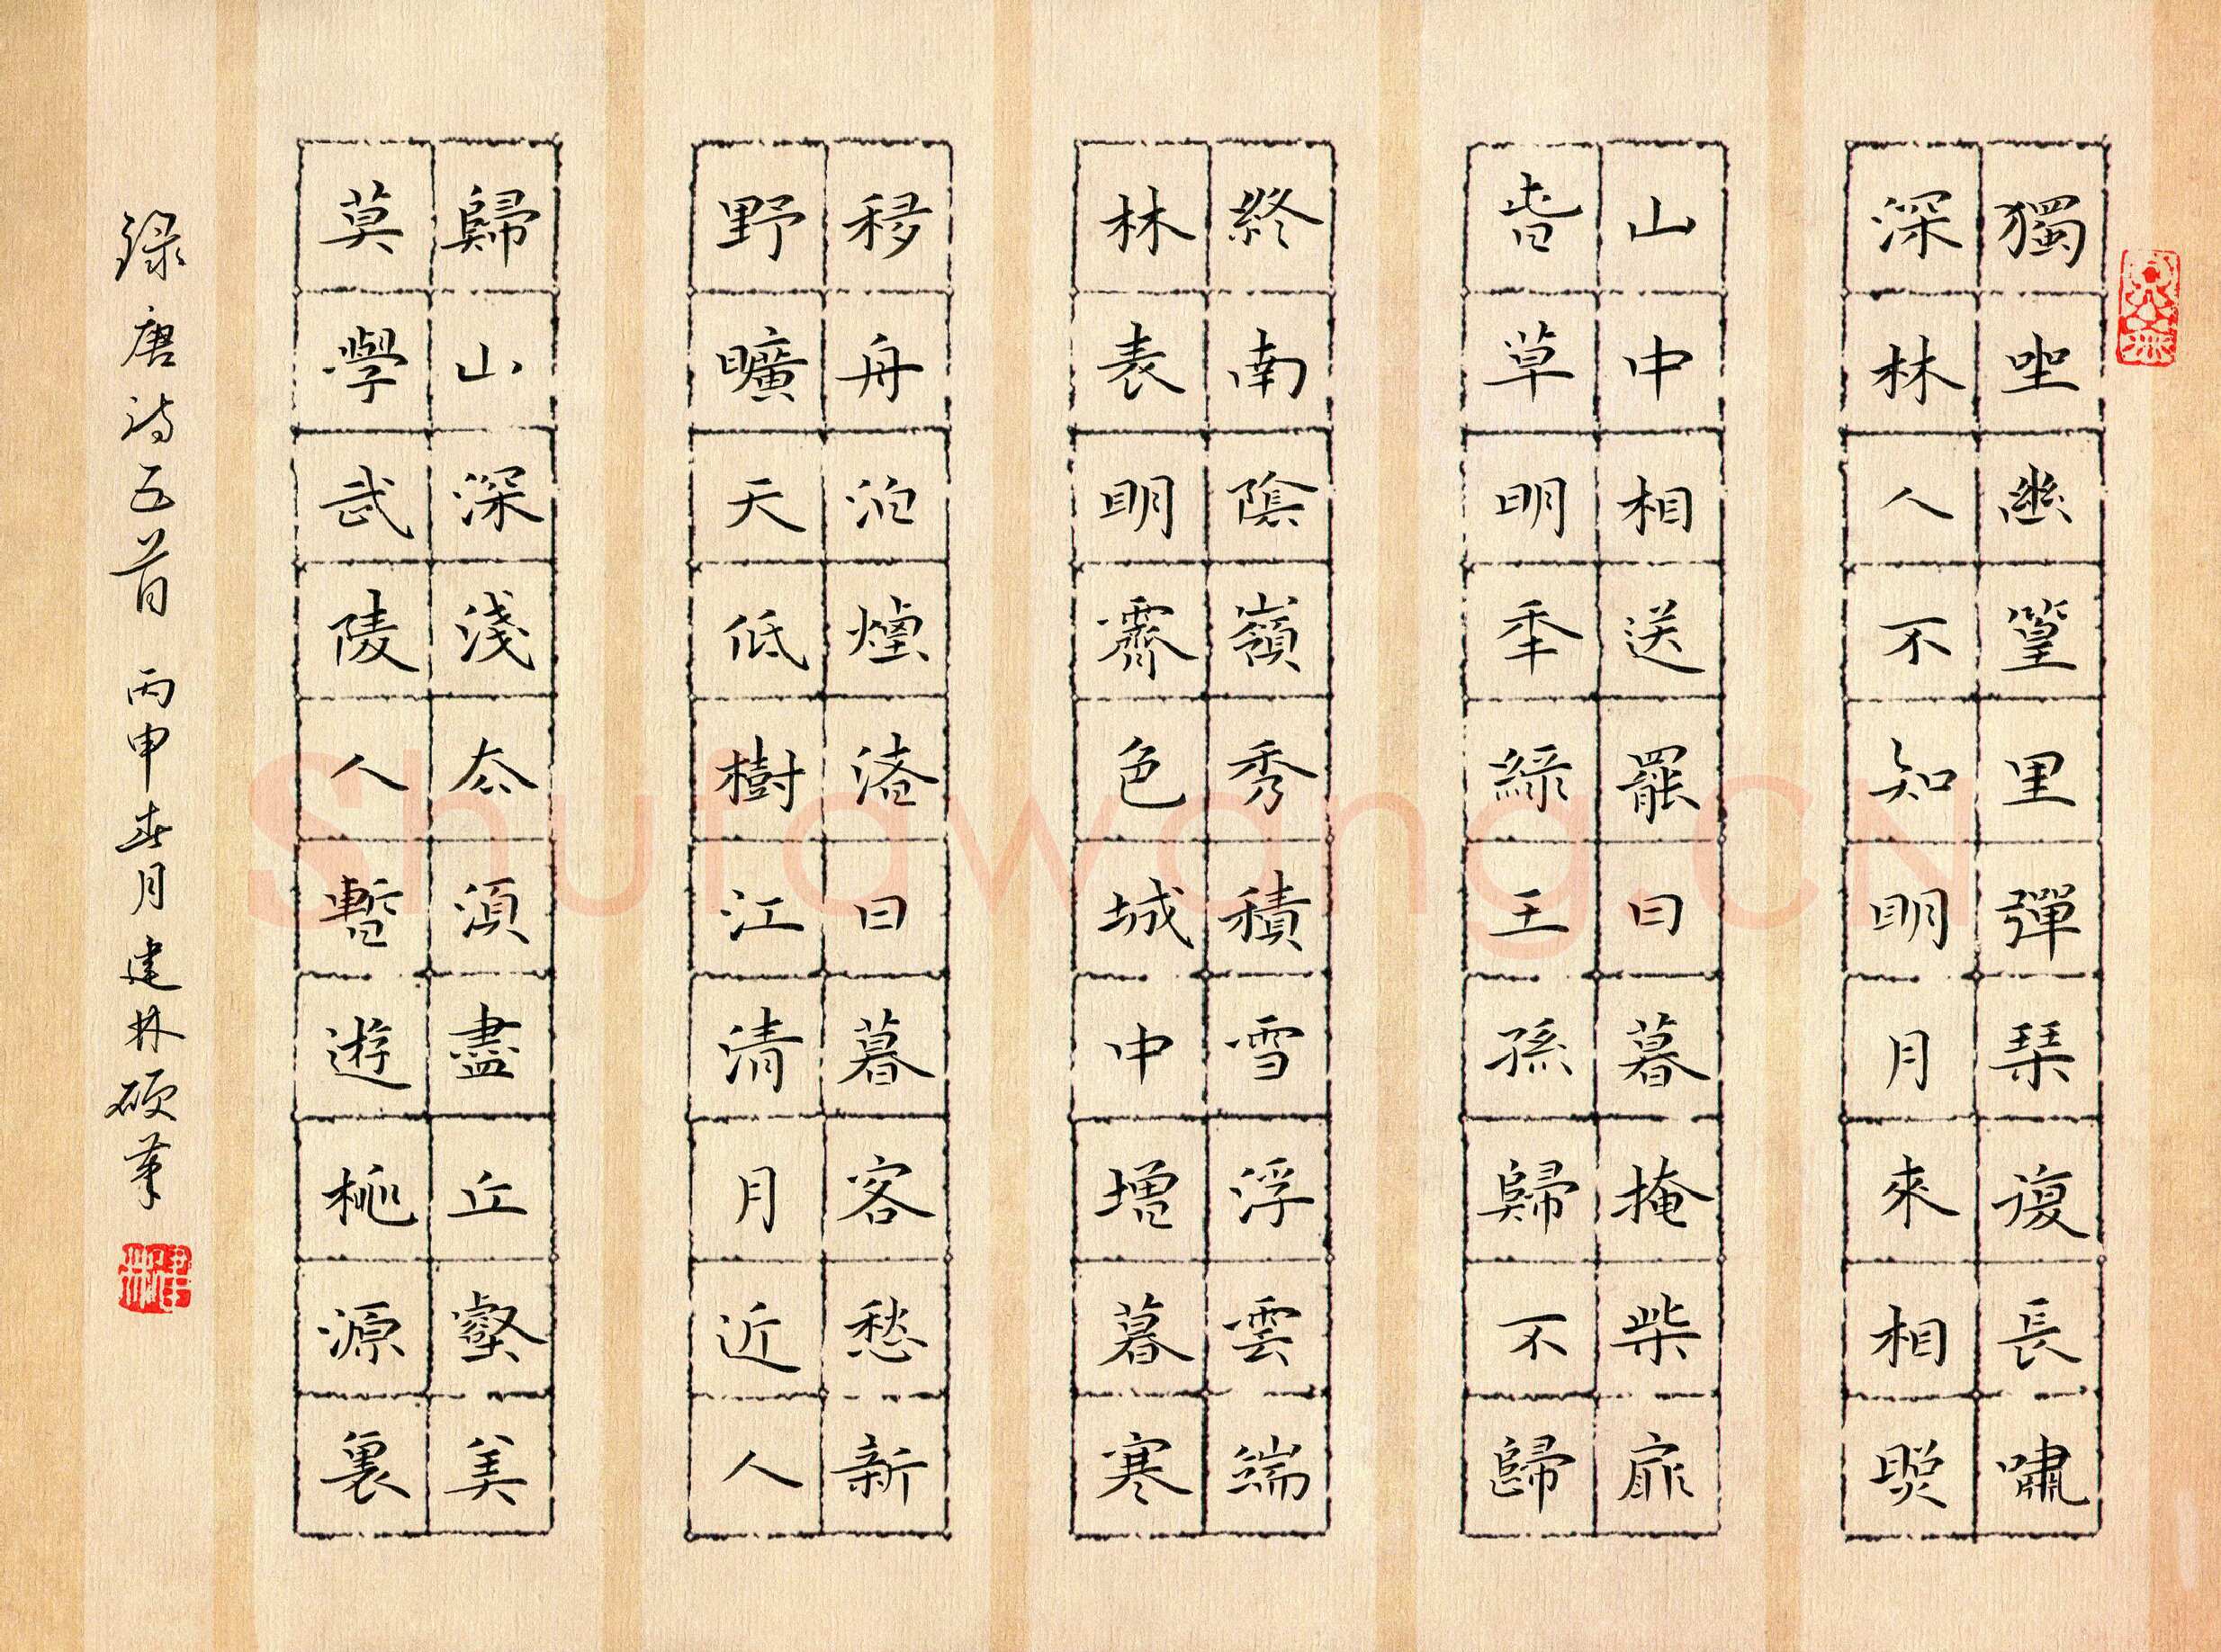 獨坐幽篁里彈琴復長嘯
深林人不知明月來相照
山中相送罷日暮掩柴扉
春草明年綠王孫歸不歸
終南陰嶺秀積雪浮雲端
林表明霽色城中增暮寒
移舟泊煙渚日暮客愁新
野曠天低樹江清月近人
歸山深淺去須盡丘壑美
莫學武陵人暫遊桃源裏
錄唐詩五首 丙申春月建林硕筆
建林
Shufawang.CN